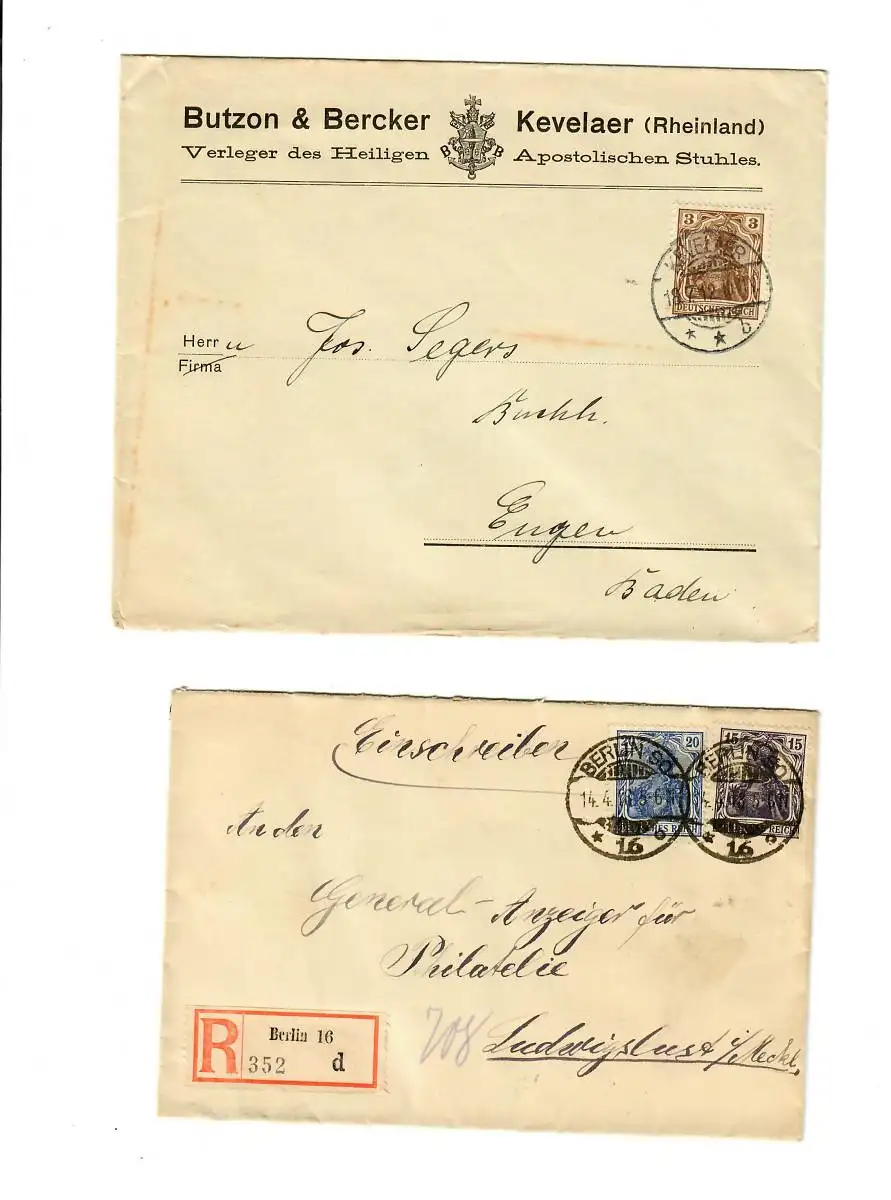 Butzon & Bercker Kevelaer (Rheinland)
Verleger des Heiligen B B Apostolischen Stuhles.
3 3
DEUTSCHES REICH
KEVELAER
b
Herr u Jos. Segers
Firma
Buchh.
Engen
Baden
Einschreiben
20
15 15
BERLIN SO
BERLIN SO
14.4. 5-6
16
16
An den
General-Anzeiger für
Philatelie
Ludwigslust i/Meckl.
708
R Berlin 16
352 d